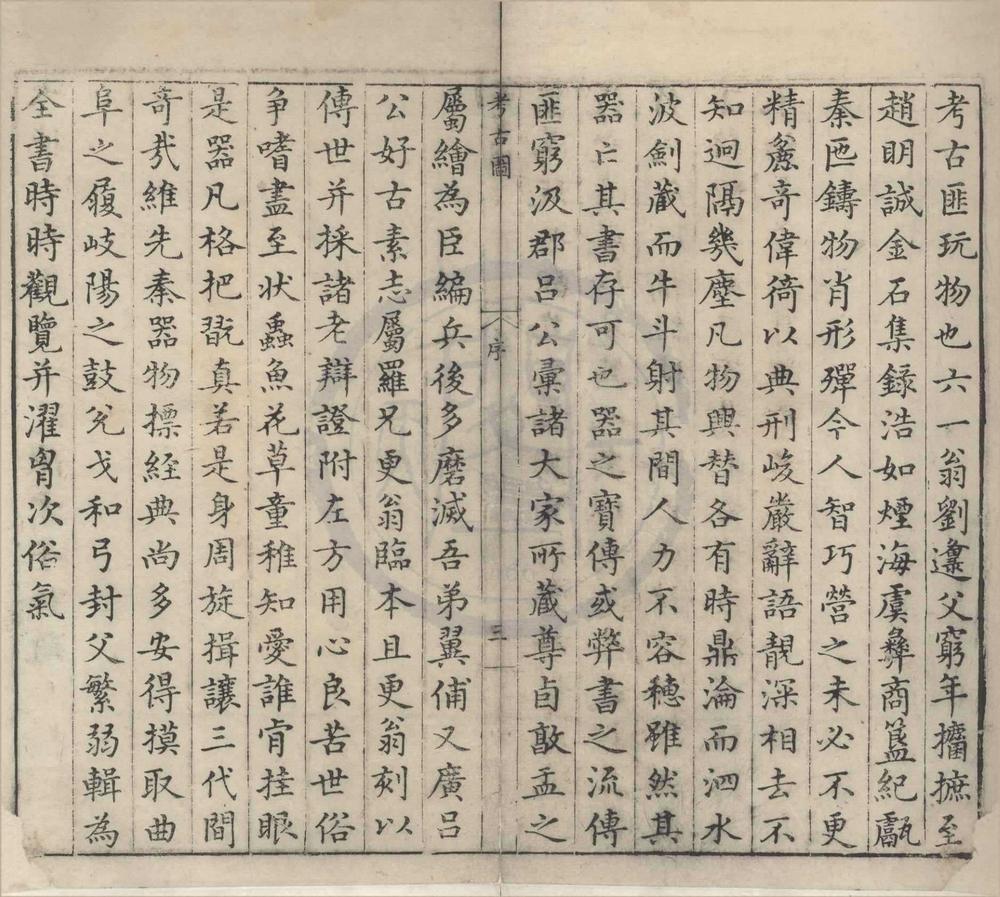 考古匪玩物也六一翁劉邍父窮年㩅摭至
趙明誠金石集錄浩如煙海虞彝商簋紀甗
秦匜鑄物肖形殫今人智巧營之未必不更
精麁竒偉倚以典刑峻嚴辭語靚深相去不
知迥隔幾塵凡物興替各有時鼎淪而泗水
波劍藏而牛斗射其間人力不容穗雖然其
器亡其書存可也器之寶傳或弊書之流傳
匪窮汲郡呂公彙諸大家所藏尊卣敦盂之
考古圖
序
三
屬繪為臣編兵後多磨滅吾弟翼俌又廣呂
公好古素志屬羅兄更翁臨本且更翁刻以
傳世并採諸老辯證附左方用心良苦世俗
争嗜畫至状蟲魚花草童稚知愛誰肯挂眼
是器凡格把翫真若是身周旋揖讓三代間
竒㢤維先秦器物摽経典尚多安得摸取曲
阜之履岐陽之鼓兊戈和弓封父繁弱輯為
全書時時觀覽并濯胷次俗氣